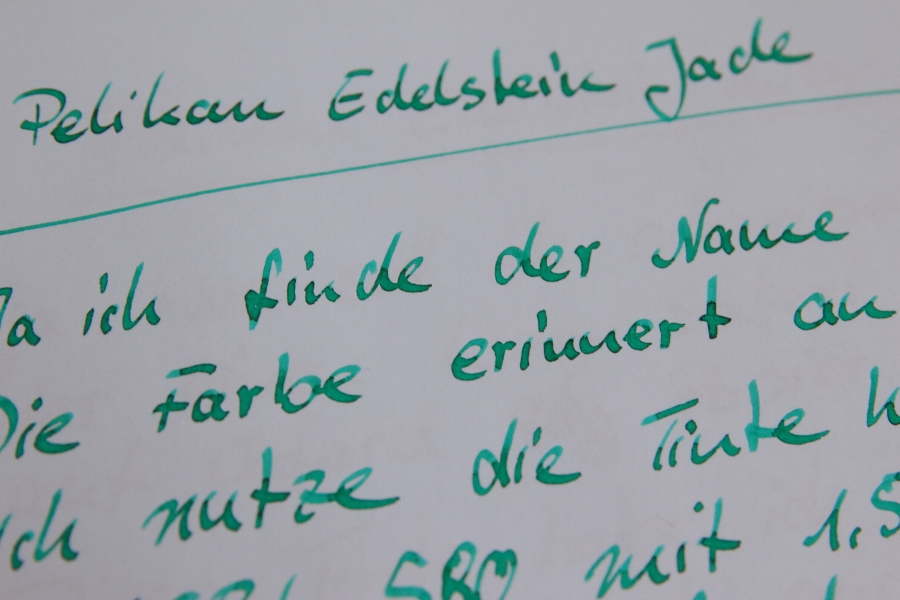 Pelikan Edelstein Jade
Ja ich finde der Name
Die Farbe erinnert an
Ich nutze die Tinte
580 mit 1.5